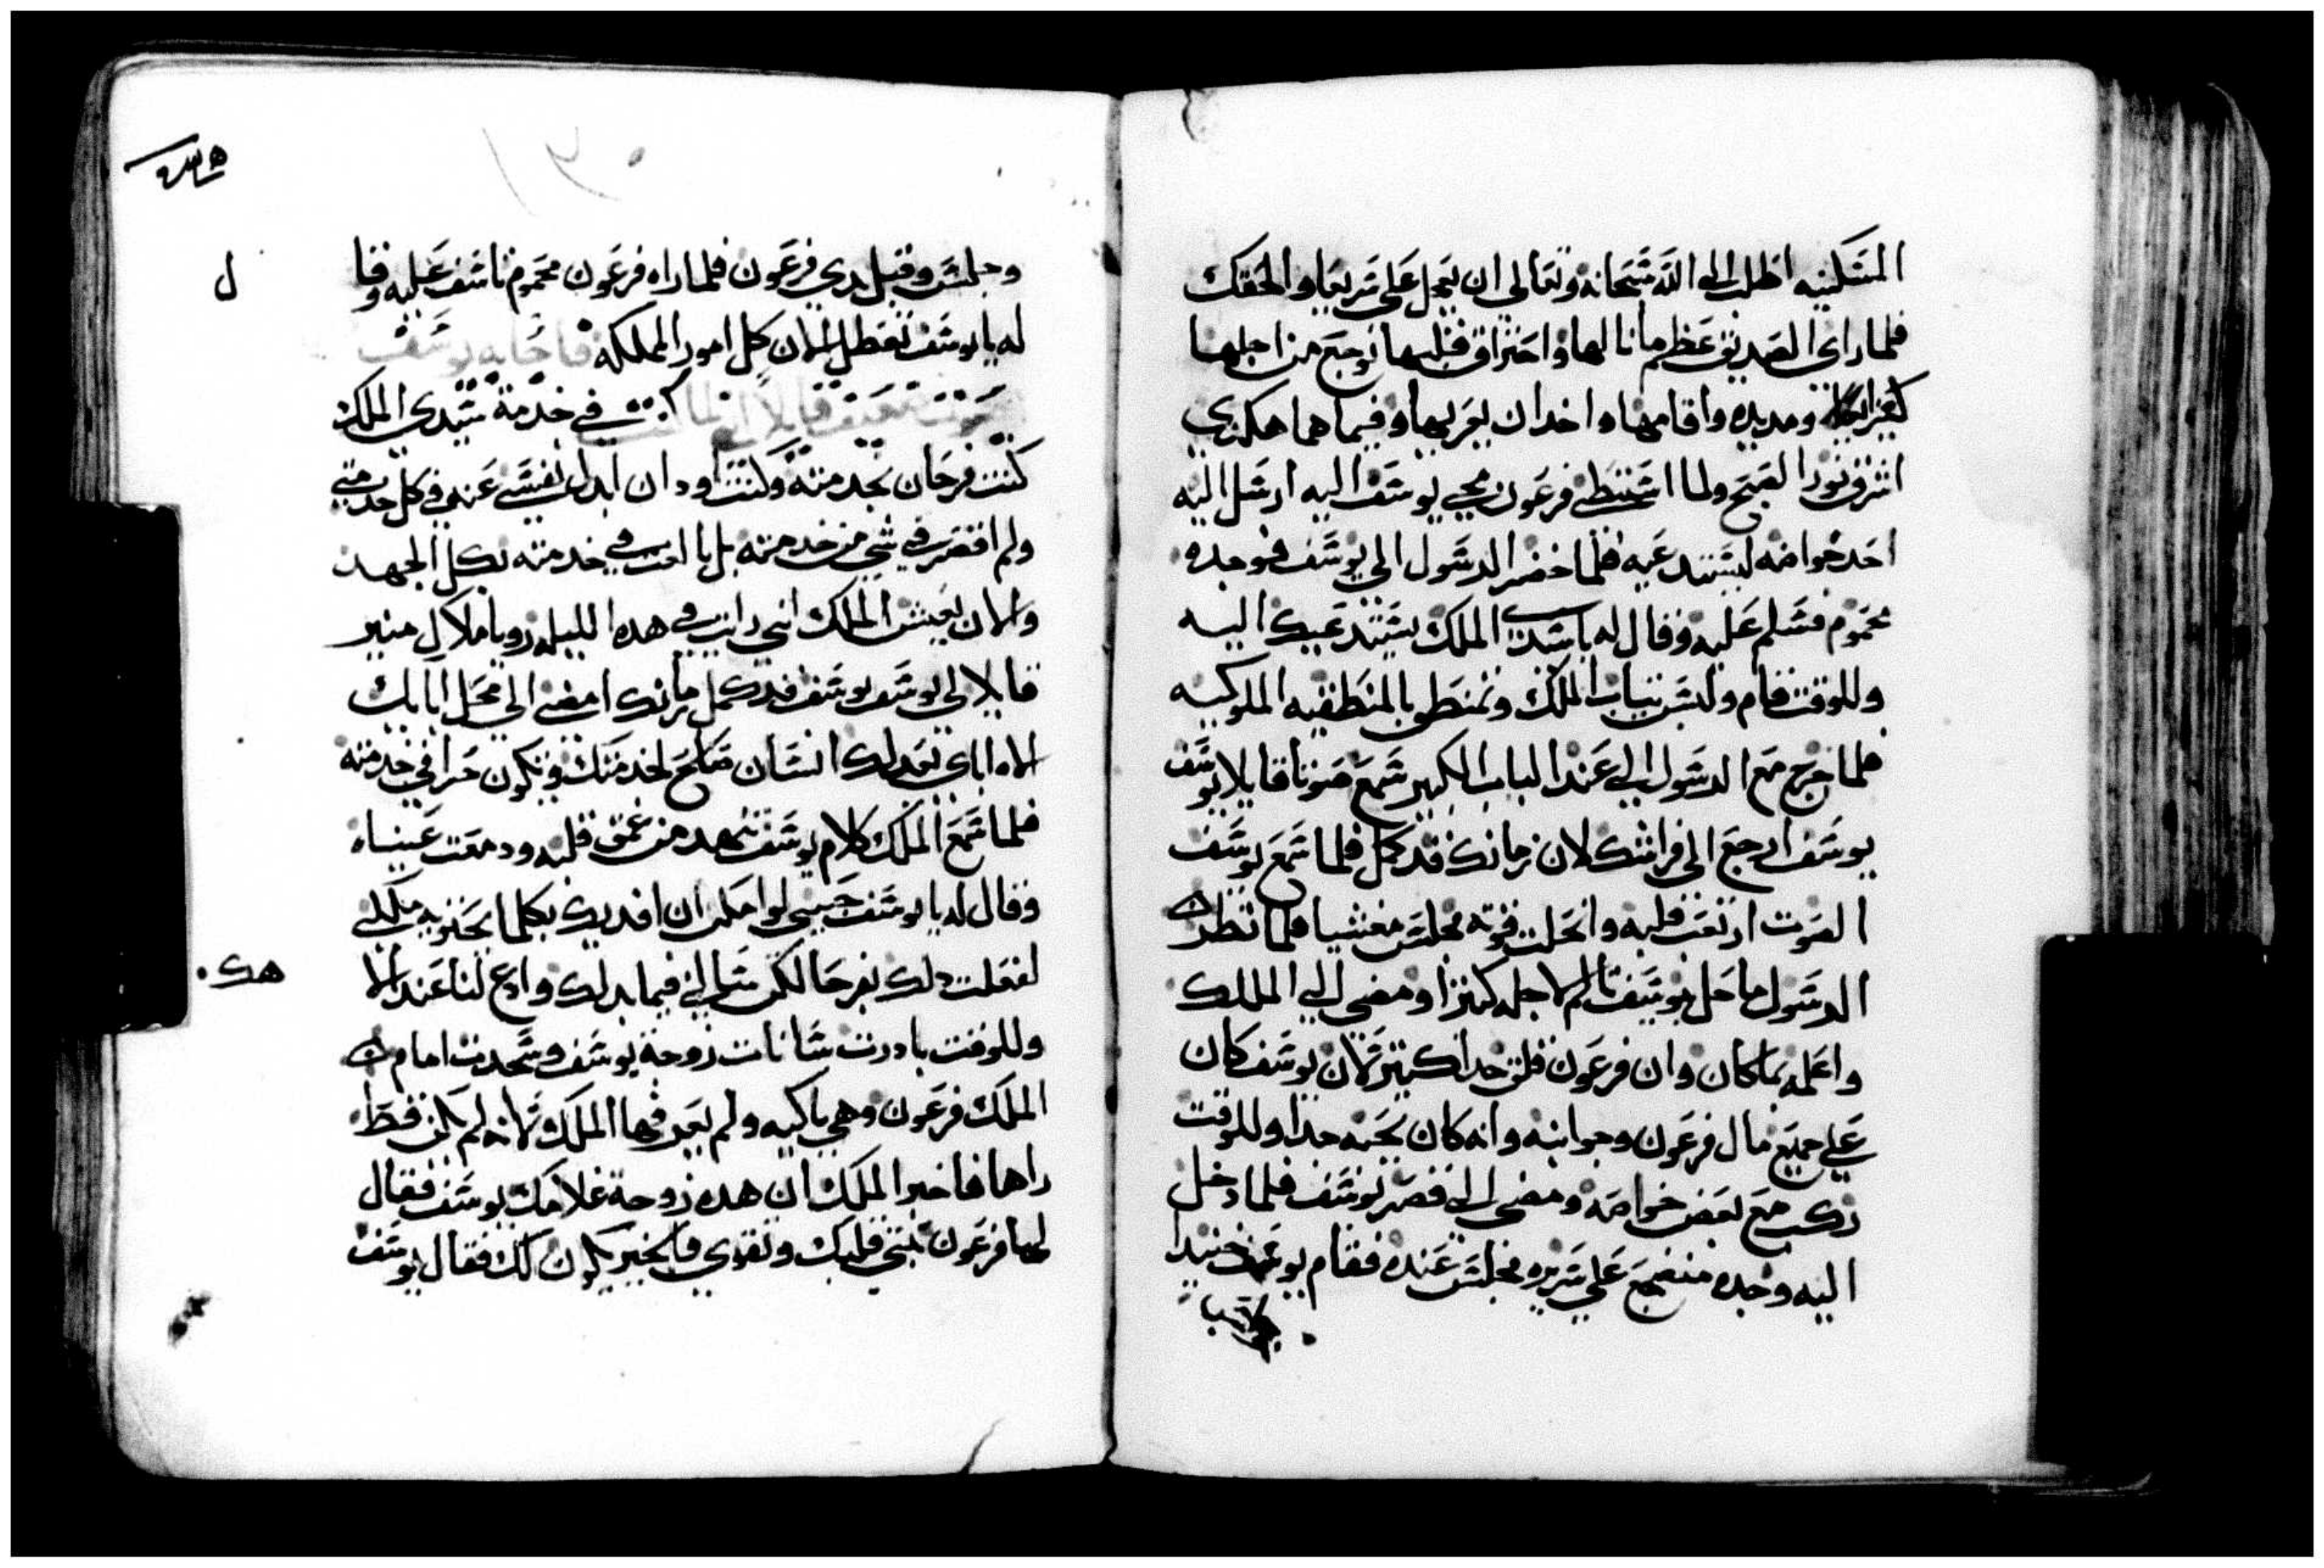 المسكينه اطلب الي الله سبحانه وتعالي ان يعجل علي سريعا والحقك
فلما راي الصديق عظم ما نالها واحتراق قلبها توجع من اجلها
كثيرا ومد يده واقامها واخد ان يعزيها وفيما هما هكدي
اشرق نور الصبح ولما استبطي فرعون مجي يوسف اليه ارسل اليه
احد خواصه ليستدعيه فلما حضر الرسول الي يوسف فوجده
محموم فسلم عليه وقال له يا سيدي الملك يستدعيك اليه
وللوقت قام ولبس تياب الملك وتمنطق بالمنطقه الملوكيه
فلما خرج مع الرسول الي عند الباب الكبير سمع صوتا قايلا يوسف
يوسف ارجع الي فراشك لان زمانك قد كمل فلما سمع يوسف
الصوت ارتعب قلبه وانحلت قوته فجلس مغشيا فلما نظر
الرسول ما حل بيوسف تالم لاجله كتيرا ومضي الي الملك
واعلمه بما كان وان فرعون قلق جدا كتير لان يوسف كان
علي جميع مال فرعون وخزاينه وانه كان يحبه جدا وللوقت
ركب مع بعض خواصه ومضي الي قصر يوسف فلما دخل
اليه وجده منضجع علي سريره فجلس عنده فقام يوسف
وجلس وقبل يدي فرعون فلما راه فرعون محموم تاسف عليه وقا
ل
له يا يوسف تعطل الان كل امور المملكه فاجابه يوسف
بصوت ضعيف قايلا انما كنت في خدمة سيدي الملك
كنت فرحان بخدمته وكنت اود ان ابدل نفسي عنه في كل خدمتي
ولم اقصر في شي من خدمته بل بالغت في خدمته بكل الجهد
والان يعيش الملك اني رايت في هده الليله رويا ملاك منير
قايلا لي يوسف يوسف قد كمل زمانك امضي الي محل ابايك
الاه اباي يعد لك انسان صالح لخدمتك ويكون حرا في خدمته
فلما سمع الملك كلام يوسف تنهد من عمق قلبه ودمعت عيناه
وقال له يا يوسف حبيبي لو امكن ان افديك بكلما تحتويه مملكتي
لفعلت دلك بفرحا لكن سالني فيما بدا لك وادع لنا عند الا
هك
وللوقت بادرت سانات زوجة يوسف وسجدت امام
الملك فرعون وهي باكيه ولم يعرفها الملك لانه لم يكن قط
راها فاخبر الملك ان هده زوجة غلامك يوسف فقال
لها فرعون تبتي قلبك وتقوي فالخير يكون لك فقال يوسف